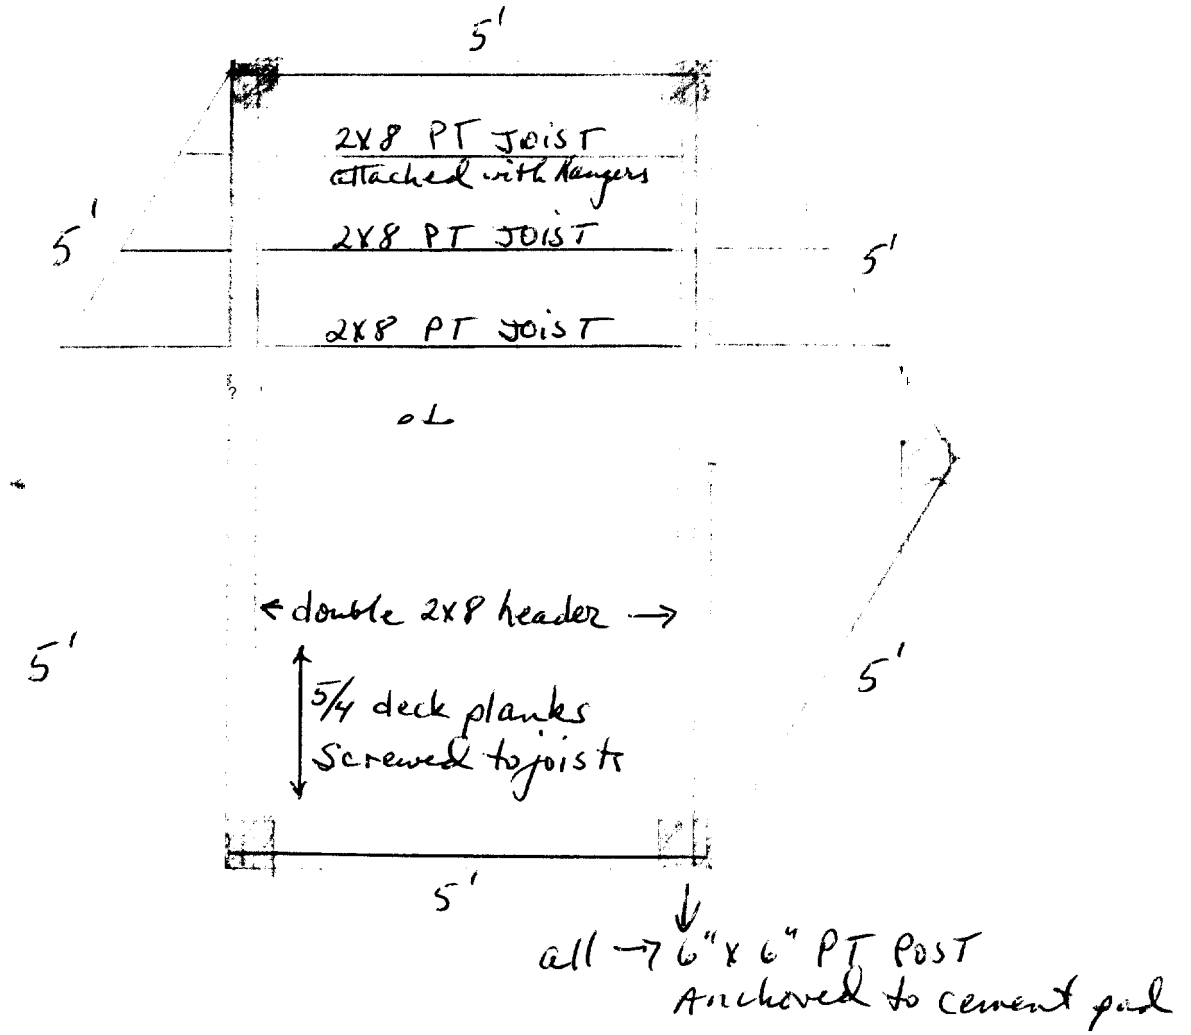 5'
2x8 PT JOIST
attached with Hangers
5'
2x8 PT JOIST
5'
2x8 PT JOIST
← double 2x8 header →
5'
5'
5/4 deck planks
Screwed to joists
5'
all → 6" x 6" PT POST
Anchored to cement pad